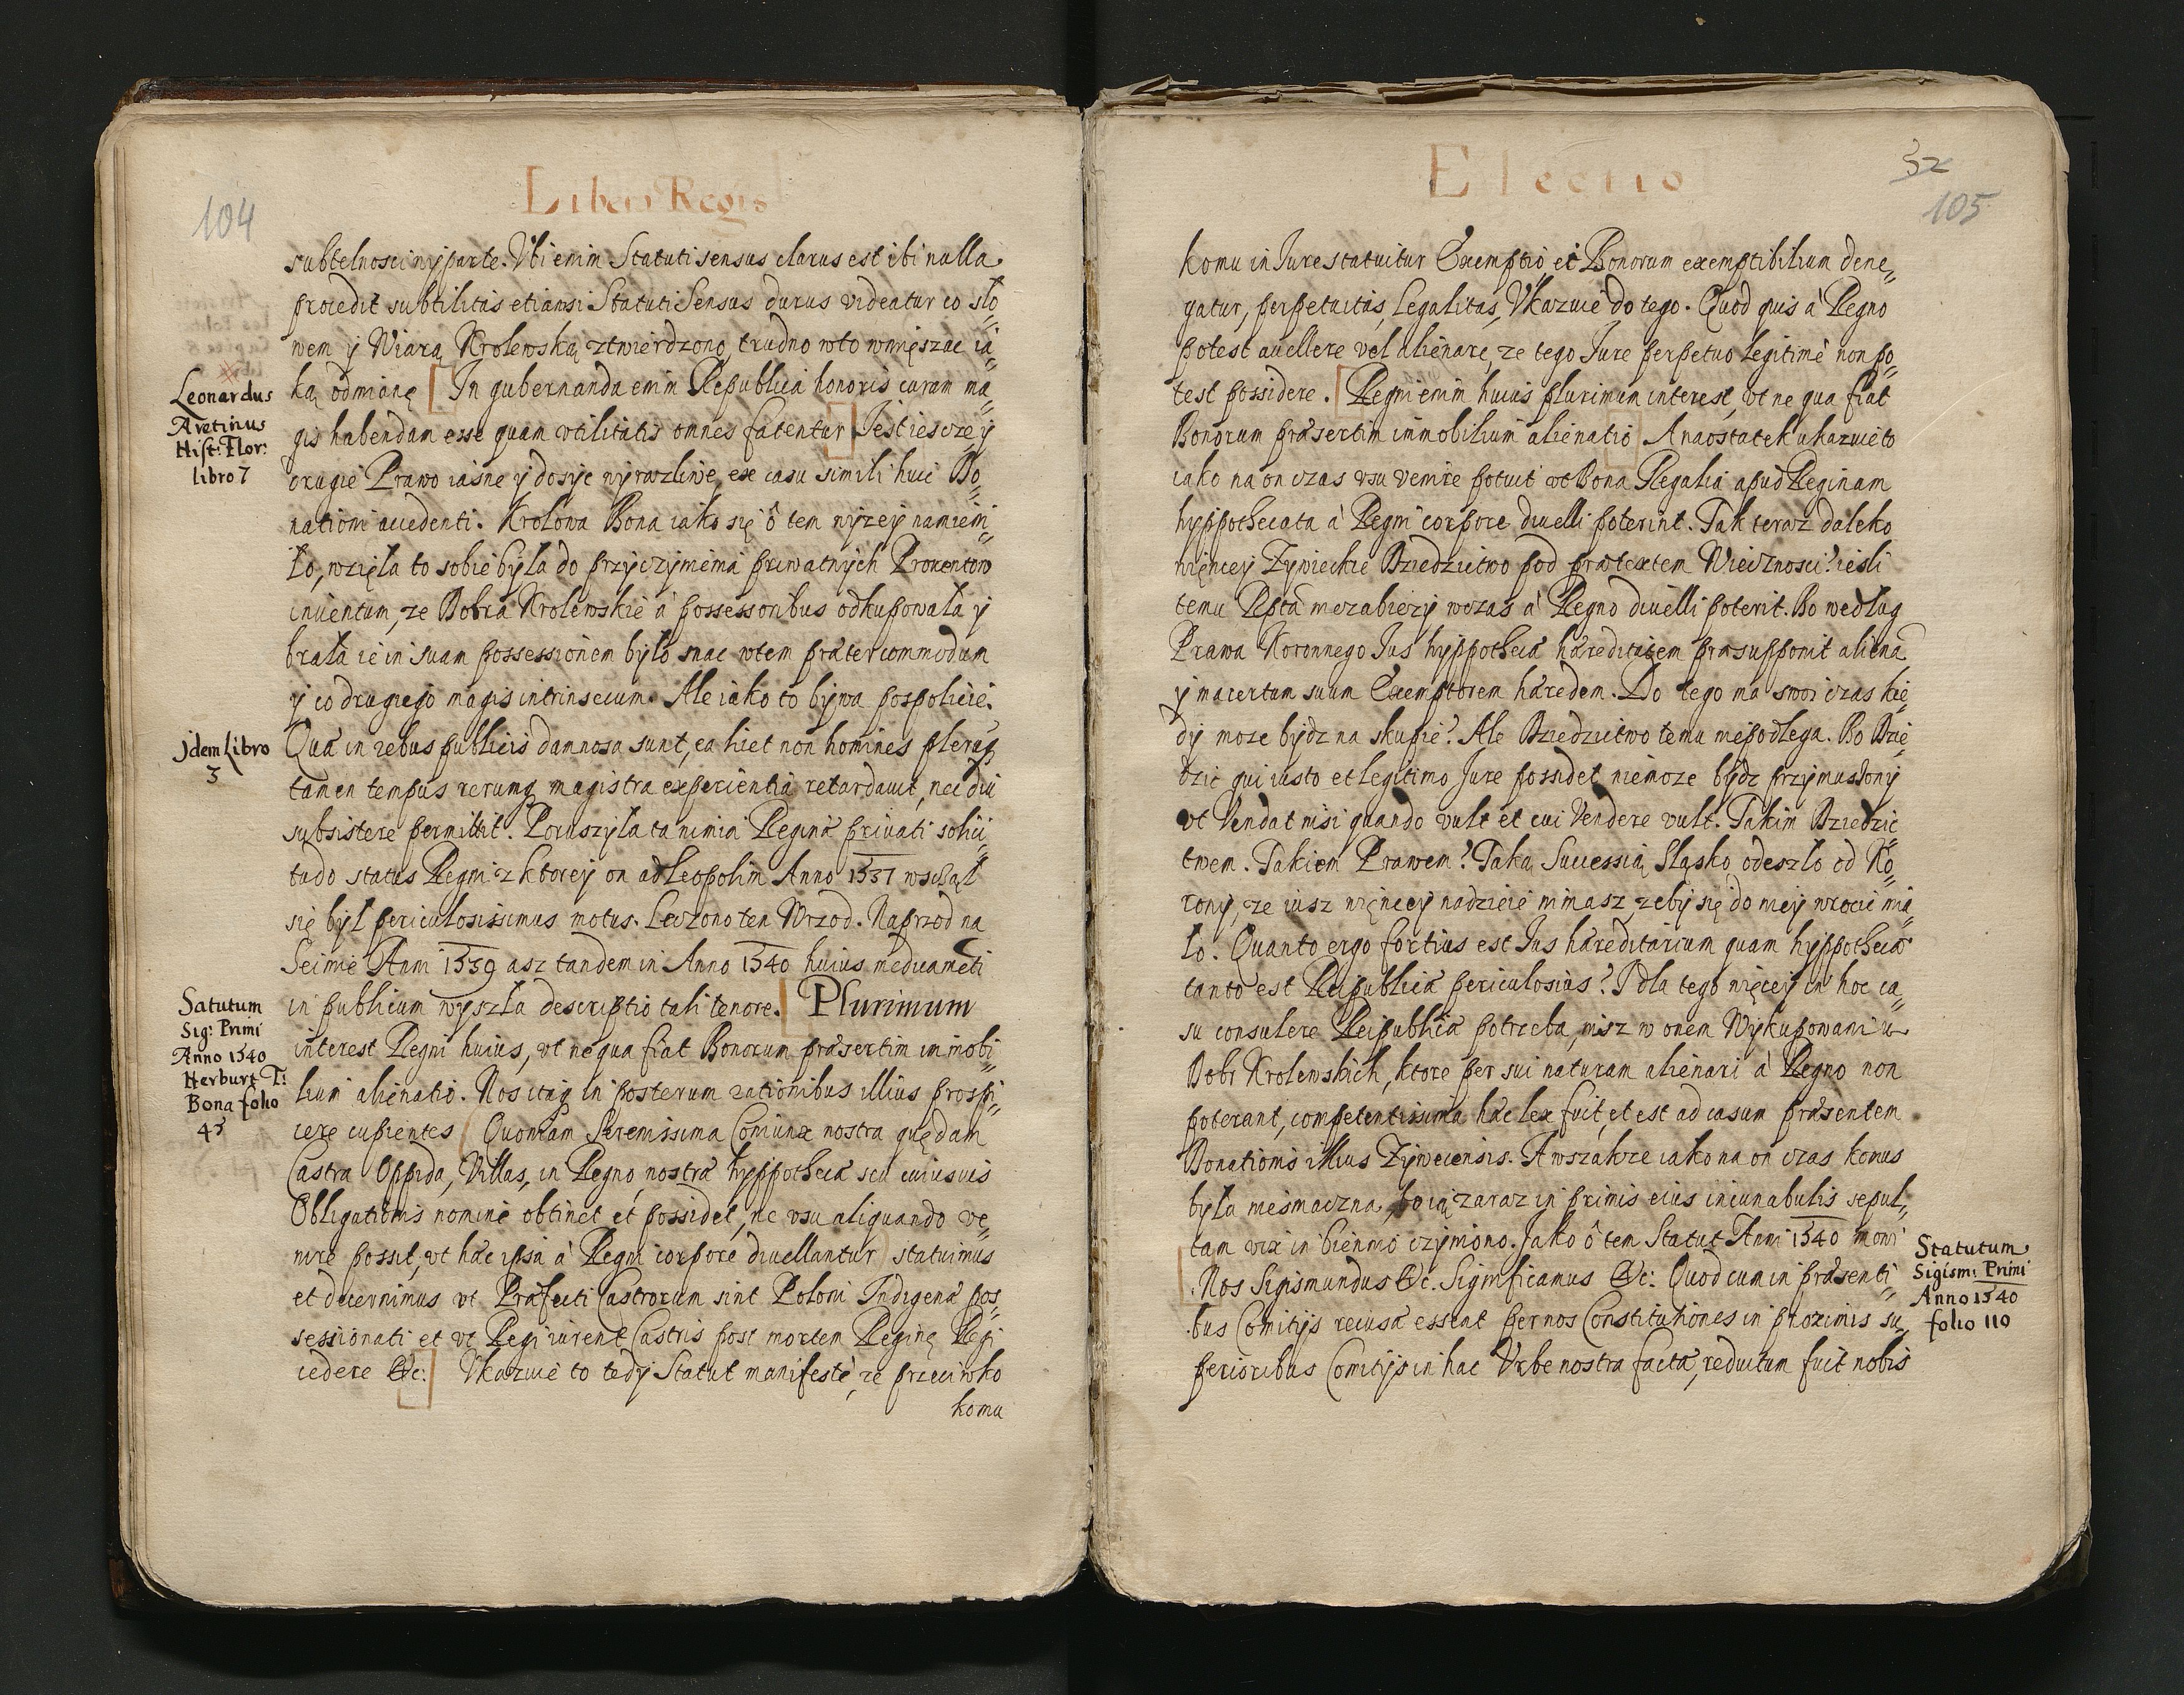 104
Liberi Regis
subtelnosci wyparte. Vbi enim Statuti sensus clarus est ibi nulla
procedit subtilitas etiamsi Statuti Sensus durus videatur co slo„
wem y Wiarą Krolewską ztwierdzono, trudno wto wmięszac ia„
ką odmianę [In gubernanda enim Republica honoris curam ma„
gis habendam esse quam vtilitatis omnes fatentur] Jest iescze y
drugie Prawo iasne y dosyc wyrazliwe, ex casu simili huic Do„
nationi accedenti. Krolowa Bona iako się ô tem wyzey namieni„
ło, wzięła to sobie była do przyczynienia priwatnych Prowentow
inuentum, ze Dobra Krolewskie a' possessoribus odkupowała y
brała ie in suam possessionem było, snac wtem præter commodum
y co drugiego magis intrinsecum. Ale iako to bywa pospolicie.
Quæ in rebus publicis damnosa sunt, ea licet non homines plerūq₃
tamen tempus rerumq₃ magistra experientia retardauit, nec diu
subsistere permittit. Poruszyła ta nimia Reginæ priuati solici„
tudo status Regni z ktorey on ad Leopolim Anno 1537 wsczął
się był periculosissimus motus. Leczono ten Wrzod. Naprzod na
Seimie Anni 1539 asz tandem in Anno 1540 huius medicamēti
in publicum wyszła descriptio tali tenore. [Plurimum
interest Regni huius, vt ne qua fiat Bonorum præsertim immobi„
lium alienatio. Nos itaq₃ in posterum rationibus illius prospi„
cere cupientes (Quoniam Serenissima Coniunx nostra quędam
Castra Oppida, Villas, in Regno nostra hyppothecæ seu cuiusuis
Obligationis nomine obtinet et possidet, ne vsu aliquando ve„
nire possit, vt hæc ipsa à Regni corpore diuellantur) statuimus
et decernimus vt Præfecti Castrorum sint Poloni Indigenæ pos„
sessionati et vt Regi iurent Castris post mortem Reginę Regi
cedere &c:] Vkazuie to tedy Statut manifestè, ze przeciwko
komu
Leonardus
Aretinus
Hist: Flor:
libro 7
Jdem Libro
3
Satutum
Sig: Primi
Anno 1540
Herburt T:
Bona folio
43
Electio
32
105
komu in Iure statuitur Exemptio et Bonorum exemptibilium dene„
gatur, perpetuitas, Legalitas, Vkazuie do tego. Quod quis à Regno
potest auellere vel alienare, ze tego Jure perpetuo legitimè non po„
test possidere. [Regni enim huius plurimum interest, vt ne qua fiat
Bonorum præsertim immobilium alienatio] A naostatek ukazuie to
iako na on czas vsu venire potuit vt Bona Regalia apud Reginam
hyppothecata à Regni corpore diuelli poterint. Tak teraz daleko
więncey Zywieckie Dziedzictwo pod prætextem Wiecznosci? iesli
temu Rpta niezabiezy wczas a' Regno diuelli poterit. Bo według
Prawa Koronnego Ius hyppothecæ hæreditatem præsupponit alienā
y ma certum suum Exemptorem hæredem. Do tego ma swoi czas kie„
dy moze bydz na skupie? Ale Dziedzictwo temu niepodlega. Bo Dzie„
dzic qui iusto et legitimo Jure possidet niemoze bydz przymuszony
vt Vendat nisi quando vult et cui Vendere vult. Takim Dziedzic
twem. Takiem Prawem? Taką Successią Sląsko odeszło od Ko„
rony, ze iusz więncey nadzieie nimasz zeby się do niey wrocic mia„
ło. Quanto ergo fortius est Ius hæreditarium quam hyppothecæ
tanto est Reipublicæ periculosius? I dla tego więcey in hoc ca„
su consulere Reipublicæ potrzeba, nisz w onem Wykupowaniu
Dobr Krolewskich, ktore per sui naturam alienari à Regno non
poterant, competentissima hæc lex fuit, et est ad casum præsentem
Donationis illius Zywecensis. A wszakze iako na on czas komus
była niesmaczna, bo ią zaraz in primis eius incunabulis sepul„
tam vix in biennio czyniono. Jako ô tem Statut Anni 1540 mowi
[Nos Sigismundus &c. Significamus &c: Quod cum in præsenti„
bus Comitijs recusæ essent per nos Constitutiones in proximis su„
perioribus Comitijs in hac Vrbe nostra facta, reductum fuit nobis
Statutum
Sigism: Primi
Anno 1540
folio 110